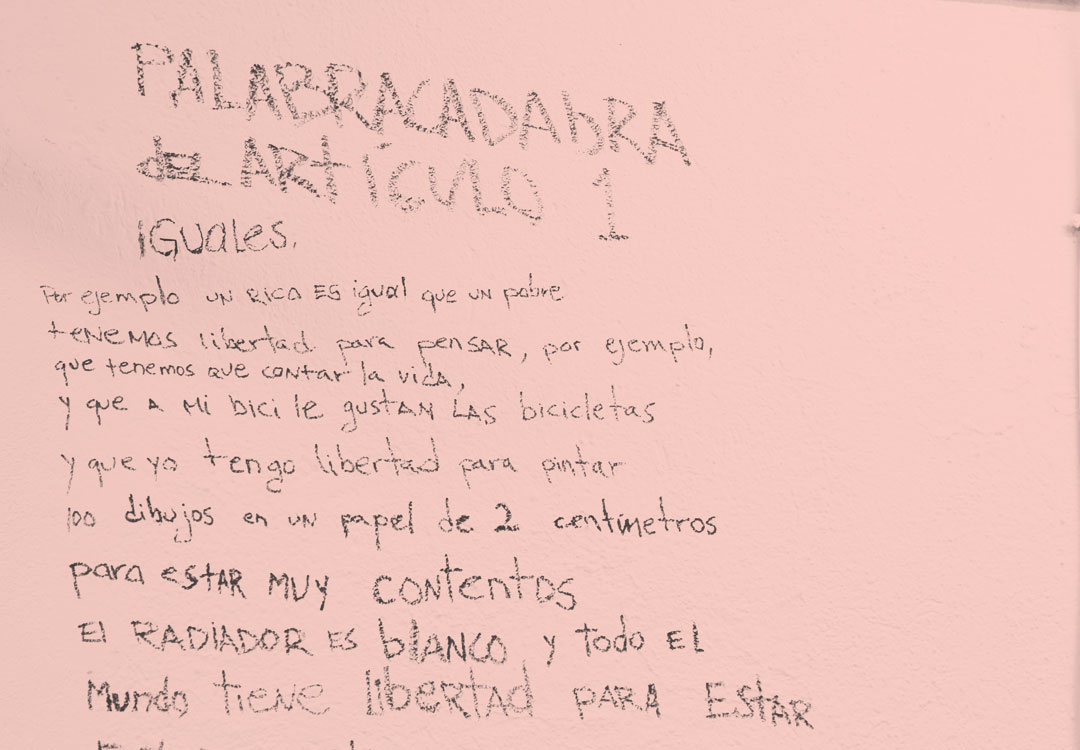 PALABRACADAbRA
dEL ARtÍCULO 1
iGUaLes.
Por ejemplo UN RICO ES igual que UN pobre
tENEMOS libertad para penSAR, por ejemplo,
que tenemos QUE CONtar la vida,
y que A Mi bici le gustAN LAS bicicletas
y que yo tengo libertad para pintar
100 dibujos en UN papel de 2 centimetros
para estAR MUY CONtentos
El RADIADOR ES blANCO y todo EL
Mundo tiene libERtAd PARA EStAR